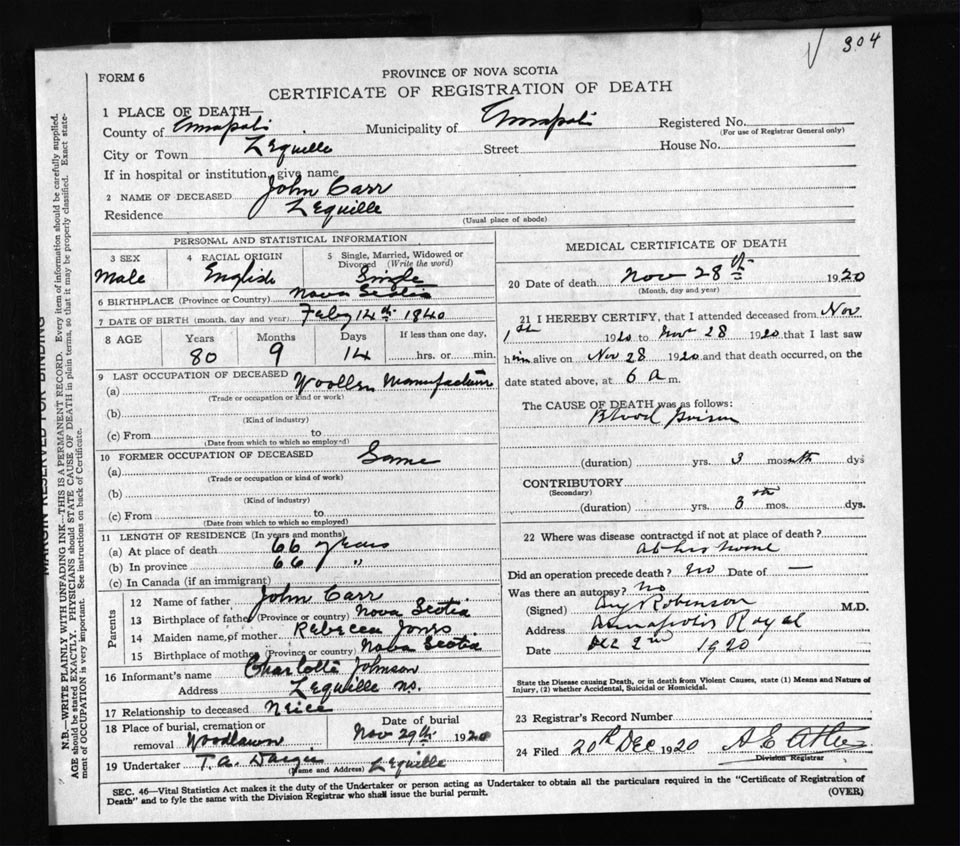 304
FORM 6
PROVINCE OF NOVA SCOTIA
CERTIFICATE OF REGISTRATION OF DEATH
1 PLACE OF DEATH—
County of Annapolis Municipality of Annapolis Registered No.
(For use of Registrar General only)
City or Town Lequille Street House No.
If in hospital or institution, give name
2 NAME OF DECEASED John Carr
Residence Lequille
(Usual place of abode)
PERSONAL AND STATISTICAL INFORMATION
3 SEX 4 RACIAL ORIGIN 5 Single, Married, Widowed or
Divorced (Write the word)
Male English Single
6 BIRTHPLACE (Province or Country) Nova Scotia
7 DATE OF BIRTH (month, day and year) Feby 14th 1840
8 AGE Years Months Days If less than one day,
80 9 14 hrs. or min.
9 LAST OCCUPATION OF DECEASED
(a) Woollen Manufacturin
(Trade or occupation or kind or work)
(b)
(Kind of industry)
(c) From to
(Date from which to which so employed)
10 FORMER OCCUPATION OF DECEASED Same
(a)
(Trade or occupation or kind of work)
(b)
(Kind of industry)
(c) From to
(Date from which to which so employed)
11 LENGTH OF RESIDENCE (In years and months)
(a) At place of death 66 years
(b) In province 66 "
(c) In Canada (if an immigrant)
Parents
12 Name of father John Carr
13 Birthplace of father (Province or country) Nova Scotia
14 Maiden name of mother Rebecca Jones
15 Birthplace of mother (Province or country) Nova Scotia
16 Informant's name Charlotte Johnson
Address Lequille ns.
17 Relationship to deceased Neice
18 Place of burial, cremation or Date of burial
removal Woodlawn Nov 29th 1920
19 Undertaker T. A. Lequille
(Name and Address)
MEDICAL CERTIFICATE OF DEATH
20 Date of death Nov 28th 1920
(Month, day and year)
21 I HEREBY CERTIFY, that I attended deceased from Nov
1st 1920 to Nov 28 1920 that I last saw
him alive on Nov 28 1920 and that death occurred, on the
date stated above, at 6 a m.
The CAUSE OF DEATH was as follows:
Blood Poison
(duration) yrs. 3 mos dys
CONTRIBUTORY
(Secondary)
(duration) yrs. 3 mos. dys.
22 Where was disease contracted if not at place of death?
at his home
Did an operation precede death? No Date of —
Was there an autopsy? No
(Signed) Robinson M.D.
Address Annapolis Royal
Date Dec 2nd 1920
State the Disease causing Death, or in death from Violent Causes, state (1) Means and Nature of
Injury, (2) whether Accidental, Suicidal or Homicidal.
23 Registrar's Record Number
24 Filed 20th Dec 1920 A E
Division Registrar
SEC. 46—Vital Statistics Act makes it the duty of the Undertaker or person acting as Undertaker to obtain all the particulars required in the "Certificate of Registration of
Death" and to fyle the same with the Division Registrar who shall issue the burial permit.
(OVER)
MARGIN RESERVED FOR BINDING
N.B.—WRITE PLAINLY WITH UNFADING INK—THIS IS A PERMANENT RECORD. Every item of information should be carefully supplied.
AGE should be stated EXACTLY. PHYSICIANS should STATE CAUSE OF DEATH in plain terms, so that it may be properly classified. Exact state-
ment of OCCUPATION is very important. See instructions on back of Certificate.